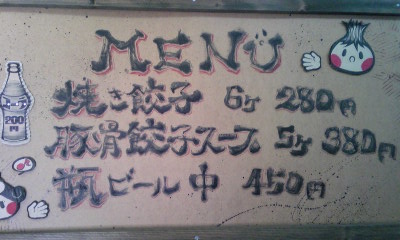 MENU
焼き餃子 6ケ 280円
200円
豚骨餃子スープ 5ケ 380円
瓶ビール 中 450円